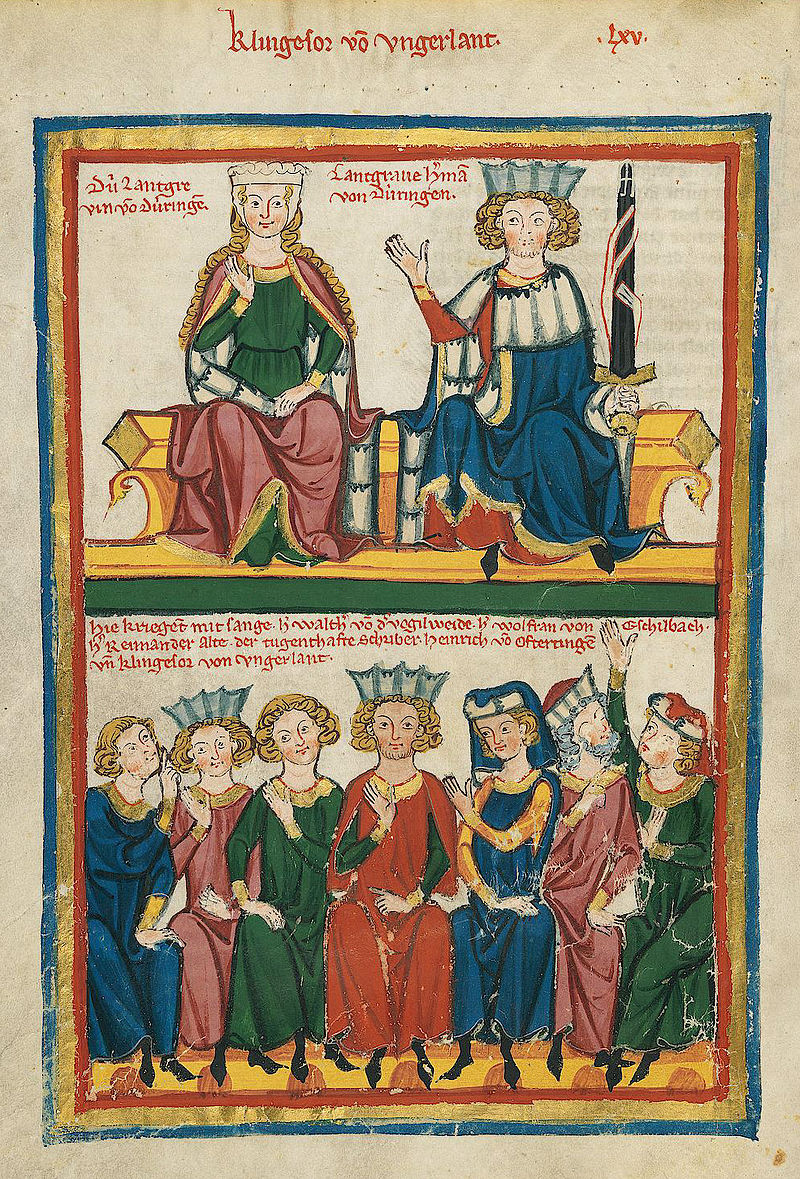 Klingesor võ vngerlant.
.lxv.
Dú Lantgre
vin võ Dúringẽ.
Lantgraue h̾mã
von Dúringen.
Hie krieget mit sange. h̾ walth̾ võ d̾ vogilweide. h̾ wolfran von Eschilbach.
h̾ Reinman der alte. der tugenthafte Schriber. Heinrich võ Ofteringẽ
vñ klingesor von vngerlant.